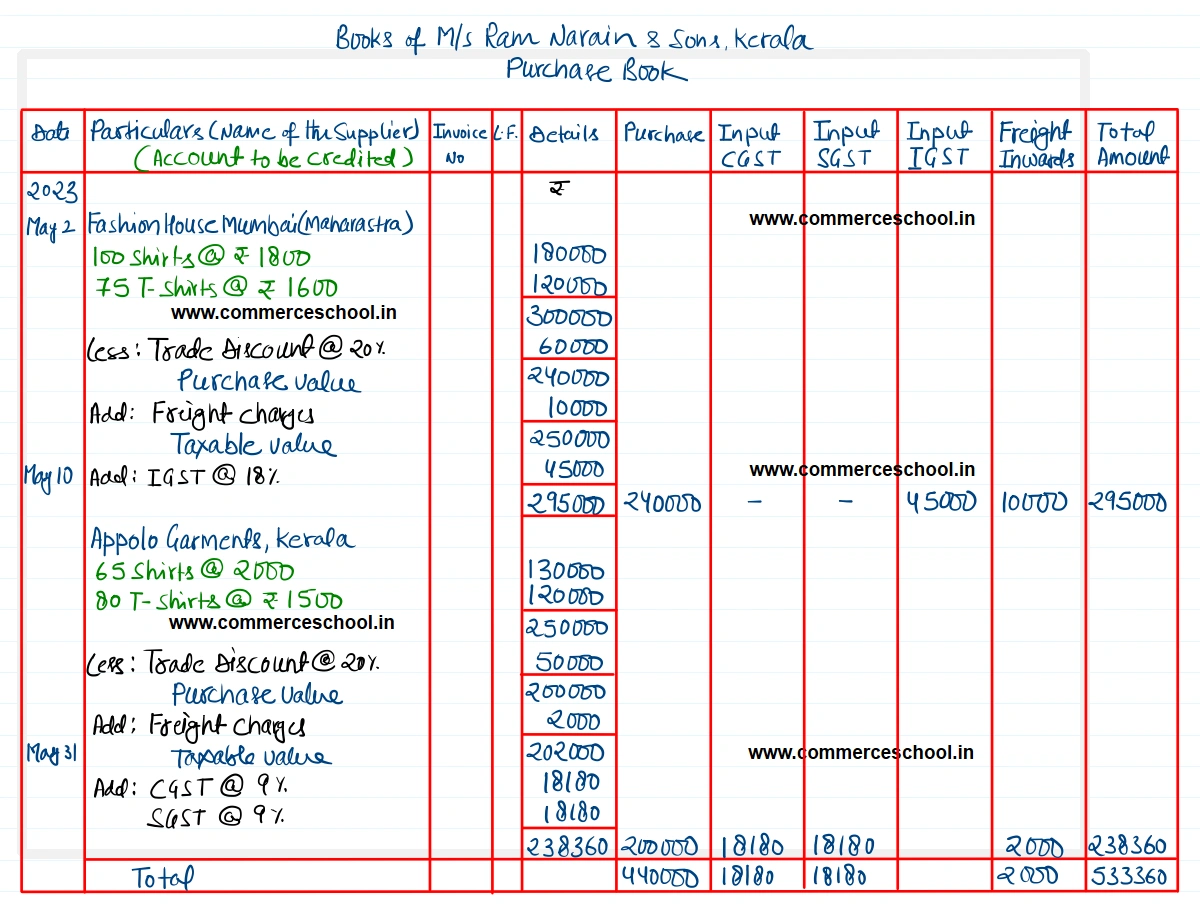 Books of M/s Ram Narain & Sons, Kerala
Purchase Book
Date Particulars (Name of the Supplier) Invoice L.F. Details Purchase Input Input Input Freight Total
(Account to be credited) No CGST SGST IGST Inwards Amount
2023 ₹
May 2 Fashion House Mumbai (Maharastra) www.commerceschool.in
100 Shirts @ ₹ 1800 180000
75 T-Shirts @ ₹ 1600 120000
www.commerceschool.in 300000
Less: Trade Discount @ 20% 60000
Purchase value 240000
Add: Freight charges 10000
Taxable value 250000
May 10 Add: IGST @ 18% 45000 www.commerceschool.in
295000 240000 - - 45000 10000 295000
Appolo Garments, Kerala
65 Shirts @ 2000 130000
80 T-Shirts @ ₹ 1500 120000
www.commerceschool.in 250000
Less: Trade Discount @ 20% 50000
Purchase value 200000
Add: Freight Charges 2000
May 31 Taxable value 202000 www.commerceschool.in
Add: CGST @ 9% 18180
SGST @ 9% 18180
238360 200000 18180 18180 2000 238360
Total 440000 18180 18180 2000 533360